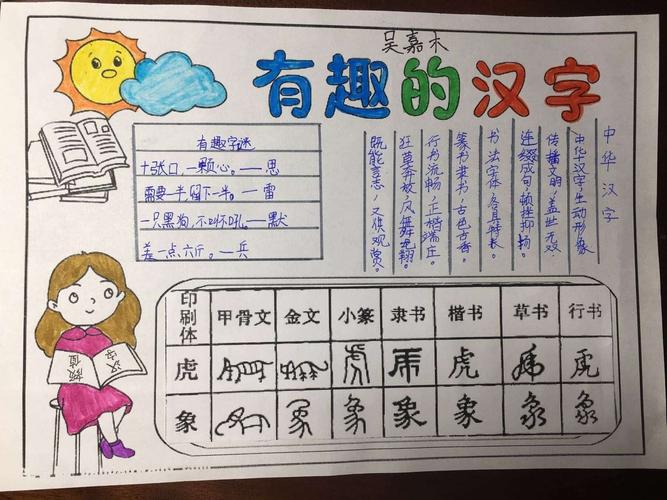 吴嘉木
有趣的汉字
有趣字谜
十张口,一颗心。——思
需要一半,留下一半。——雷
一只黑狗,不叫不吼。——默
差一点六斤。——兵
中华汉字
中华汉字,生动形象
传播文明,盖世无双
连缀成句,顿挫抑扬。
书法字体,各具特长。
篆书隶书,古色古香。
行书流畅,正楷端庄。
狂草奔放,风舞龙翔。
既能言志,又供观赏。
汉字
印刷体 甲骨文 金文 小篆 隶书 楷书 草书 行书
虎 虎 虎 虎 虎 虎 虎 虎
象 象 象 象 象 象 象 象